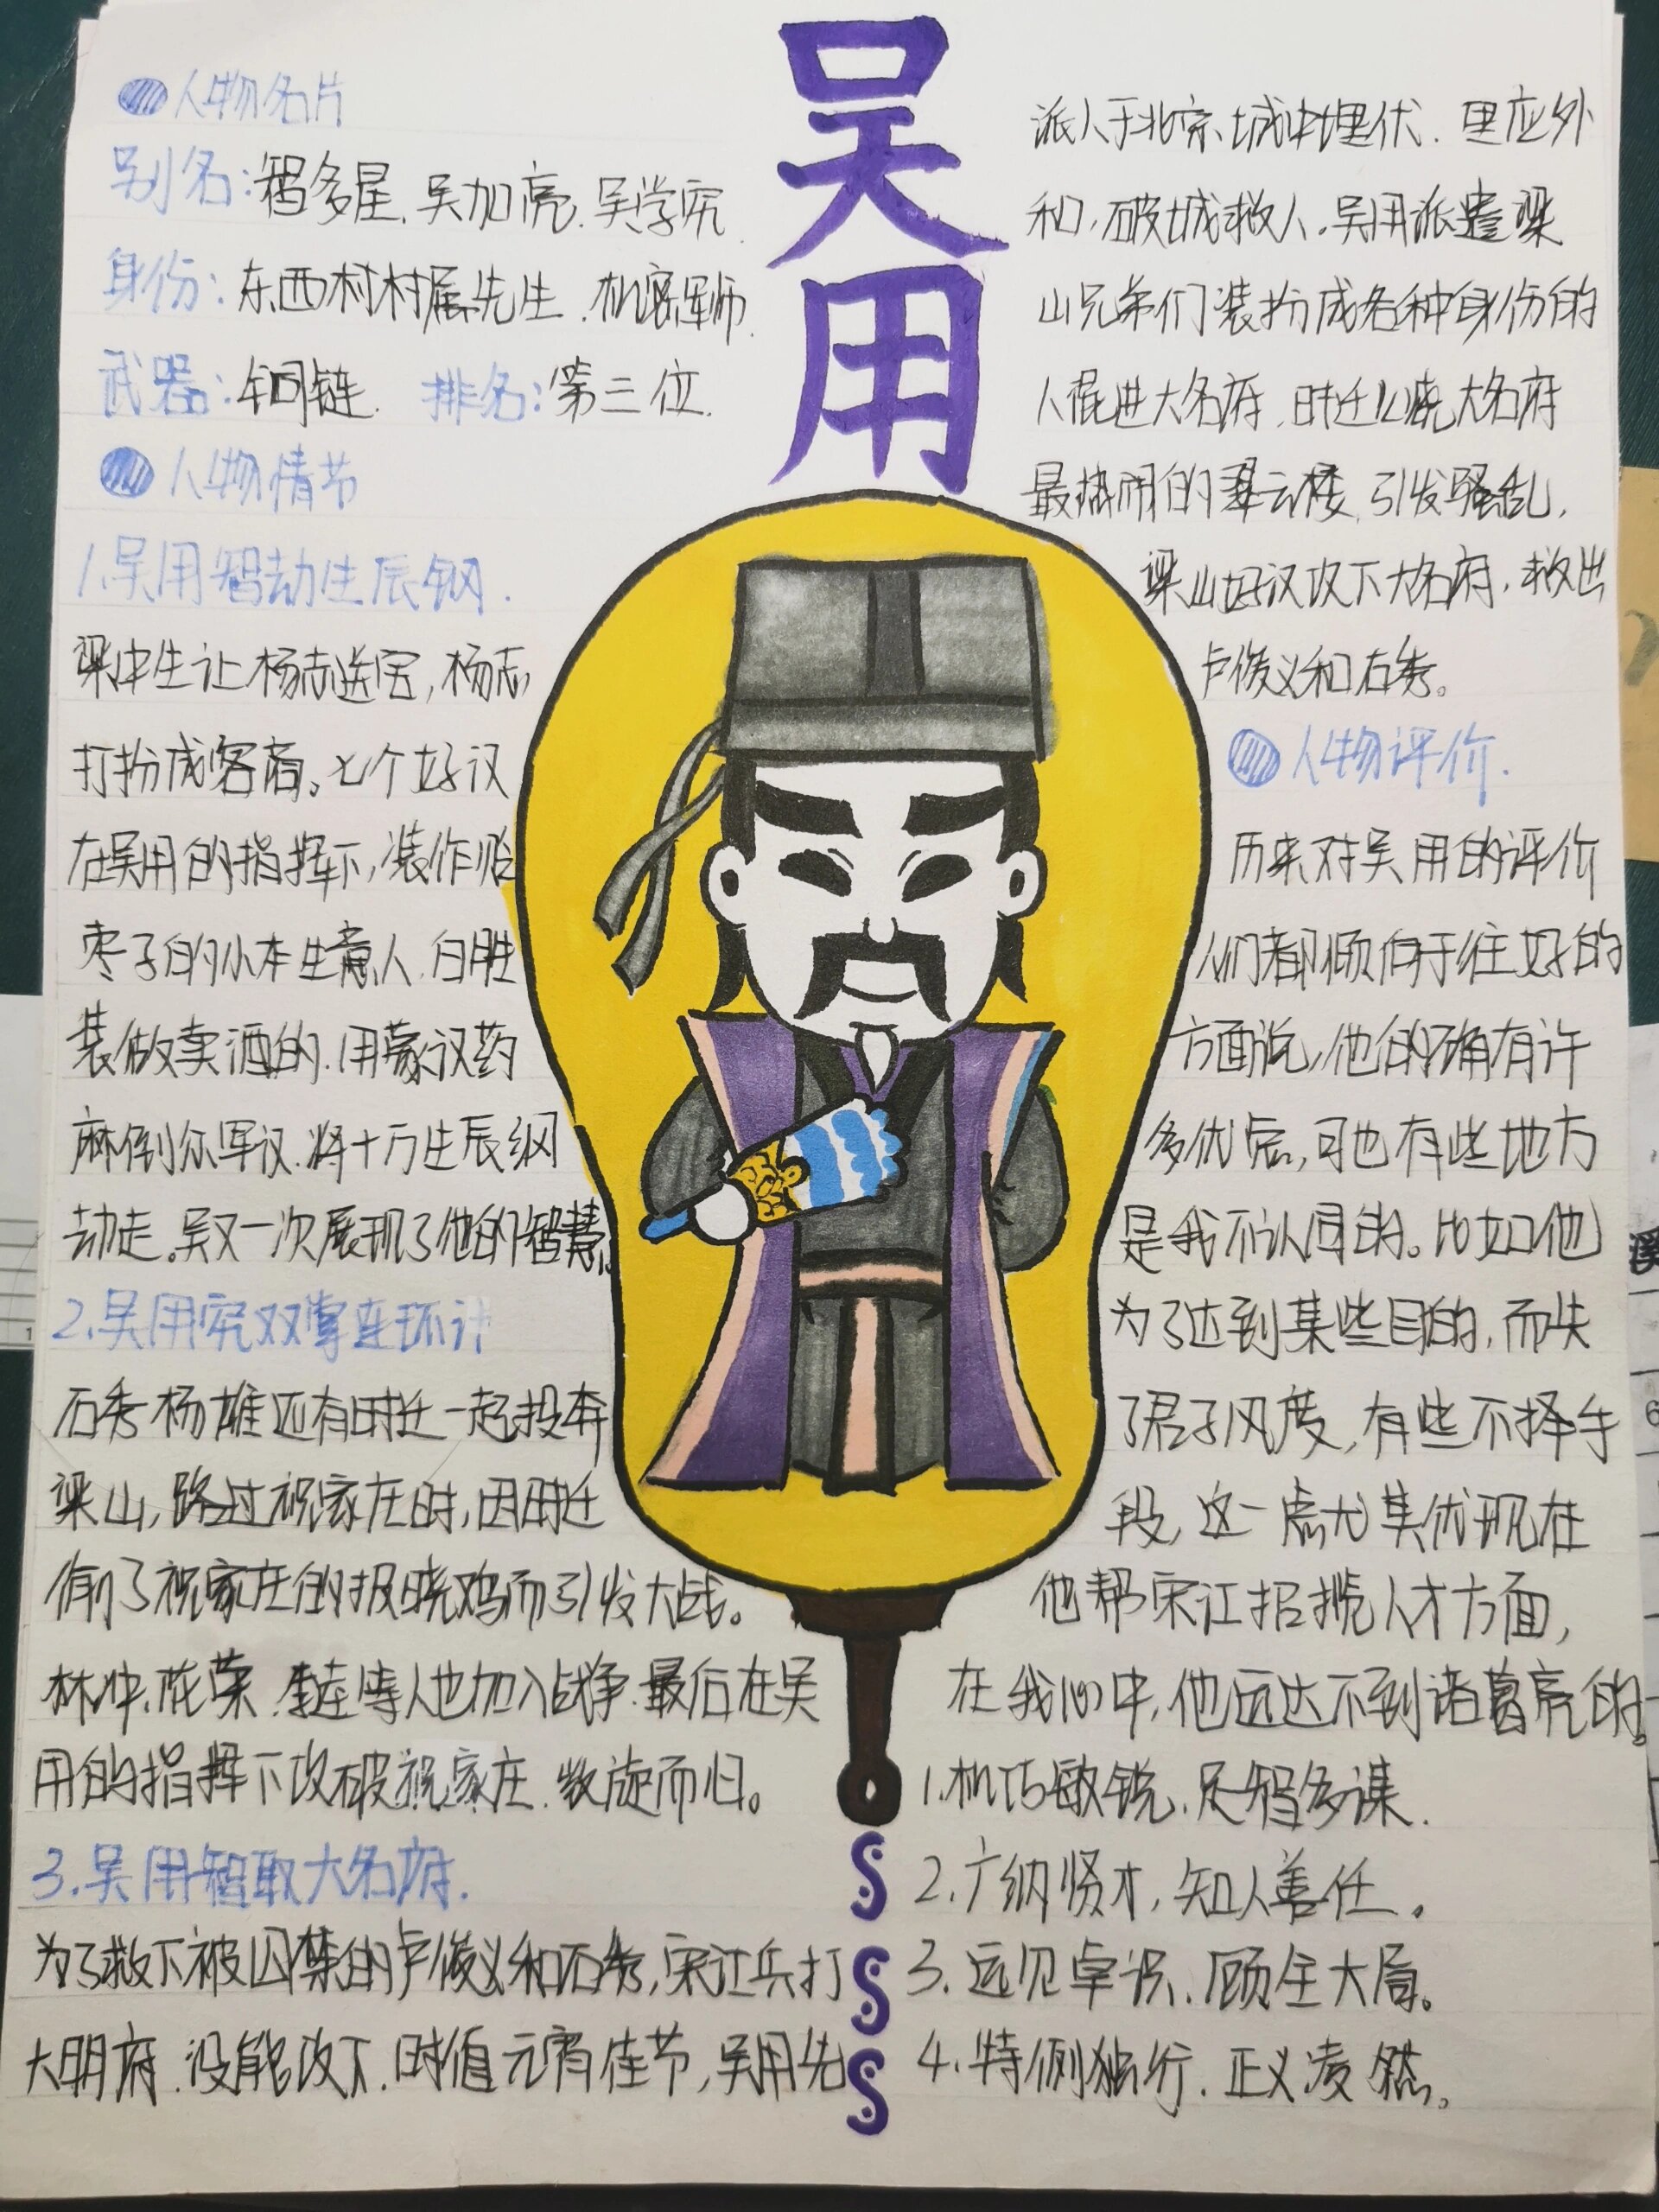 吴用
人物名片
别名:智多星.吴加亮.吴学究.
身份:东西村村属先生.机密军师.
武器:铜链. 排名:第三位.
人物情节
1.吴用智劫生辰钢.
梁中生让杨志送宝,杨志
打扮成客商。七个好汉
在吴用的指挥下,装作贩
枣子的小本生意人.白胜
装做卖酒的.用蒙汉药
麻倒众军汉.将十万生辰纲
劫走。吴又一次展现了他的智慧。
2.吴用究双掌连环计
石秀杨雄还有时迁一起投奔
梁山,路过祝家庄时,因时迁
偷了祝家庄的报晓鸡而引发大战。
林冲.花荣.李逵等人也加入战争.最后在吴
用的指挥下攻破祝家庄.凯旋而归。
3.吴用智取大名府.
为了救下被囚禁的卢俊义和石秀,宋江兵打
大明府.没能攻下.时值元宵佳节,吴用先
派人于北京城中埋伏.里应外
和,破城救人.吴用派遣梁
山兄弟们装扮成各种身份的
人混进大名府.时迁火烧大名府
最热闹的翠云楼.引发骚乱,
梁山好汉攻下大名府.救出
卢俊义和石秀。
人物评价.
历来对吴用的评价
人们都倾向于往好的
方面说,他的确有许
多优点,可也有些地方
是我不认同的。比如他
为了达到某些目的,而失
了君子风度,有些不择手
段,这一点尤其优现在
他帮宋江招揽人才方面,
在我心中,他远达不到诸葛亮的。
1.机巧敏锐.足智多谋.
2.广纳贤才,知人善任.
3.远见卓识.顾全大局。
4.特例独行.正义凌然。